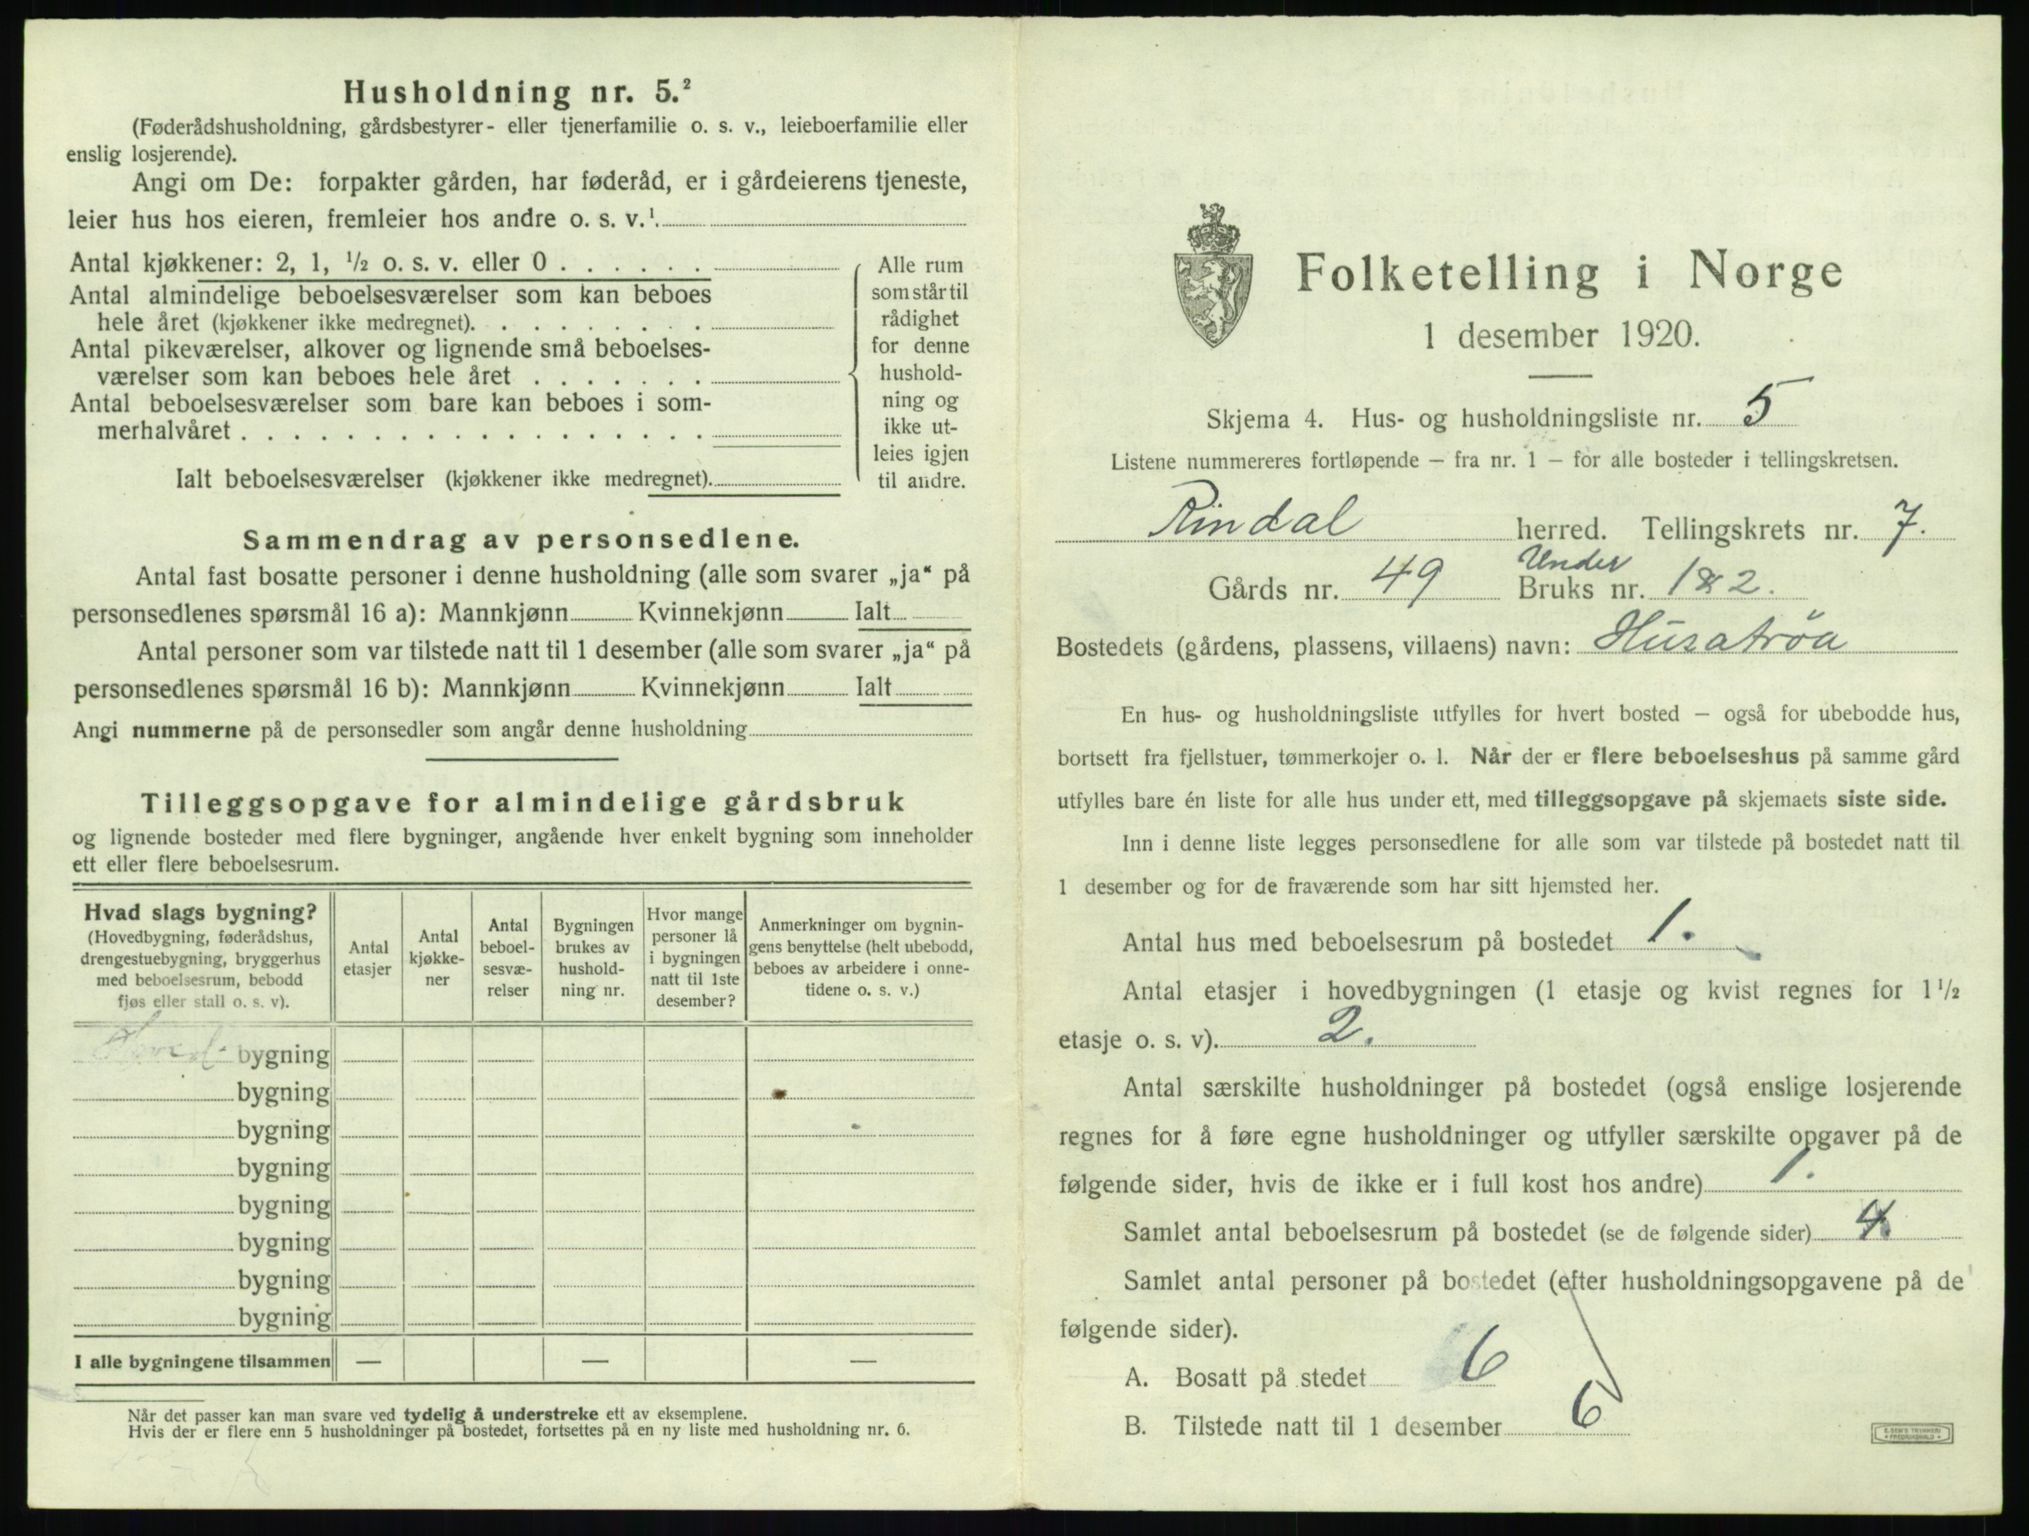 Husholdning nr. 5.²
(Føderådshusholdning, gårdsbestyrer- eller tjenerfamilie o. s. v., leieboerfamilie eller
enslig losjerende).
Angi om De: forpakter gården, har føderåd, er i gårdeierens tjeneste,
leier hus hos eieren, fremleier hos andre o. s. v.¹.
Antal kjøkkener: 2, 1, ½ o. s. v. eller 0 . . . . . .
Antal almindelige beboelsesværelser som kan beboes
hele året (kjøkkener ikke medregnet). . . . . . . . .
Antal pikeværelser, alkover og lignende små beboelses-
værelser som kan beboes hele året . . . . . . .
Antal beboelsesværelser som bare kan beboes i som-
merhalvåret . . . . . . . . . . . . . . . . . .
Ialt beboelsesværelser (kjøkkener ikke medregnet).
Alle rum
som står til
rådighet
for denne
hushold-
ning og
ikke ut-
leies igjen
til andre.
Sammendrag av personsedlene.
Antal fast bosatte personer i denne husholdning (alle som svarer „ja“ på
personsedlenes spørsmål 16 a): Mannkjønn Kvinnekjønn Ialt
Antal personer som var tilstede natt til 1 desember (alle som svarer „ja“ på
personsedlenes spørsmål 16 b): Mannkjønn Kvinnekjønn Ialt
Angi nummerne på de personsedler som angår denne husholdning
Tilleggsopgave for almindelige gårdsbruk
og lignende bosteder med flere bygninger, angående hver enkelt bygning som inneholder
ett eller flere beboelsesrum.
Hvad slags bygning?
(Hovedbygning, føderådshus,
drengestuebygning, bryggerhus
med beboelsesrum, bebodd
fjøs eller stall o. s. v).
Antal
etasjer
Antal
kjøkke-
ner
Antal
beboel-
sesvæ-
relser
Bygningen
brukes av
hushold-
ning nr.
Hvor mange
personer lå
i bygningen
natt til 1ste
desember?
Anmerkninger om bygnin-
gens benyttelse (helt ubebodd,
beboes av arbeidere i onne-
tidene o. s. v.)
Hoved- bygning
bygning
bygning
bygning
bygning
bygning
bygning
bygning
I alle bygningene tilsammen — — —
Når det passer kan man svare ved tydelig å understreke ett av eksemplene.
Hvis der er flere enn 5 husholdninger på bostedet, fortsettes på en ny liste med husholdning nr. 6.
Folketelling i Norge
1 desember 1920.
Skjema 4. Hus- og husholdningsliste nr. 5
Listene nummereres fortløpende — fra nr. 1 — for alle bosteder i tellingskretsen.
Rindal herred. Tellingskrets nr. 7.
Under
Gårds nr. 49 Bruks nr. 1&2.
Bostedets (gårdens, plassens, villaens) navn: Husatrøa
En hus- og husholdningsliste utfylles for hvert bosted — også for ubebodde hus,
bortsett fra fjellstuer, tømmerkojer o. l. Når der er flere beboelseshus på samme gård
utfylles bare én liste for alle hus under ett, med tilleggsopgave på skjemaets siste side.
Inn i denne liste legges personsedlene for alle som var tilstede på bostedet natt til
1 desember og for de fraværende som har sitt hjemsted her.
Antal hus med beboelsesrum på bostedet 1.
Antal etasjer i hovedbygningen (1 etasje og kvist regnes for 1 ½
etasje o. s. v). 2.
Antal særskilte husholdninger på bostedet (også enslige losjerende
regnes for å føre egne husholdninger og utfyller særskilte opgaver på de
følgende sider, hvis de ikke er i full kost hos andre) 1.
Samlet antal beboelsesrum på bostedet (se de følgende sider) 4.
Samlet antal personer på bostedet (efter husholdningsopgavene på de
følgende sider).
A. Bosatt på stedet 6
B. Tilstede natt til 1 desember 6